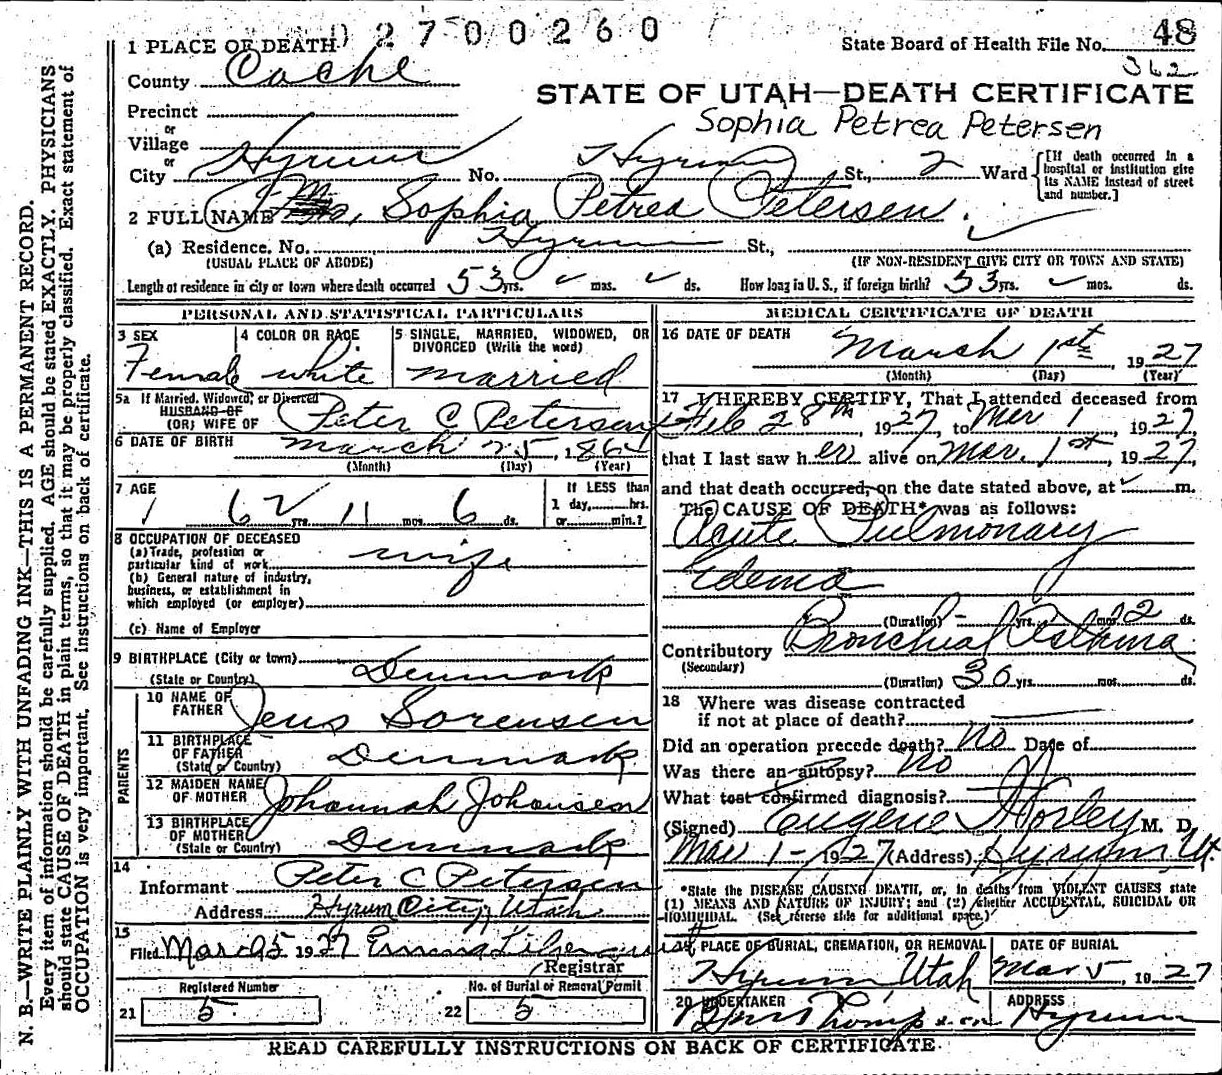 02700260
1 PLACE OF DEATH
State Board of Health File No. 48
362
County Cache
STATE OF UTAH—DEATH CERTIFICATE
Precinct
Sophia Petrea Petersen
or
Village
or
City Hyrum No. Hyrum St., 2 Ward
[If death occurred in a hospital or institution give its NAME instead of street and number.]
2 FULL NAME Sophia Petrea Petersen
(a) Residence. No. Hyrum St.,
(USUAL PLACE OF ABODE) (IF NON-RESIDENT GIVE CITY OR TOWN AND STATE)
Length of residence in city or town where death occurred 53 yrs. mos. ds. How long in U. S., if foreign birth? 53 yrs. mos. ds.
PERSONAL AND STATISTICAL PARTICULARS
3 SEX 4 COLOR OR RACE 5 SINGLE, MARRIED, WIDOWED, OR DIVORCED (Write the word)
Female white married
5a If Married, Widowed, or Divorced
HUSBAND OF
(OR) WIFE OF Peter C Petersen
6 DATE OF BIRTH March 25, 1864
(Month) (Day) (Year)
7 AGE If LESS than
1 day, hrs.
62 yrs. 11 mos. 6 ds. or min.?
8 OCCUPATION OF DECEASED
(a) Trade, profession or
particular kind of work wife
(b) General nature of industry,
business, or establishment in
which employed (or employer)
(c) Name of Employer
9 BIRTHPLACE (City or town)
(State or Country) Denmark
PARENTS
10 NAME OF FATHER Jens Sorensen
11 BIRTHPLACE OF FATHER (State or Country) Denmark
12 MAIDEN NAME OF MOTHER Johannah Johansen
13 BIRTHPLACE OF MOTHER (State or Country) Denmark
14
Informant Peter C Petersen
Address Hyrum City Utah
15
Filed Mar 5 1927 Emma
Registrar
Registered Number No. of Burial or Removal Permit
21 5 22 5
MEDICAL CERTIFICATE OF DEATH
16 DATE OF DEATH March 1st 1927
(Month) (Day) (Year)
17 I HEREBY CERTIFY, That I attended deceased from
Feb 28th, 1927, to Mar 1, 1927,
that I last saw her alive on Mar. 1st, 1927,
and that death occurred, on the date stated above, at m.
The CAUSE OF DEATH* was as follows:
Acute Pulmonary
Edema
(Duration) - yrs. mos. 2 ds.
Contributory Bronchial Asthma
(Secondary)
(Duration) 30 yrs. mos. ds.
18 Where was disease contracted
if not at place of death?
Did an operation precede death? No Date of
Was there an autopsy? No
What test confirmed diagnosis?
(Signed) Eugene Worley M. D.
Mar 1- 1927 (Address) Hyrum, Ut.
*State the DISEASE CAUSING DEATH, or, in deaths from VIOLENT CAUSES state
(1) MEANS AND NATURE OF INJURY; and (2) whether ACCIDENTAL, SUICIDAL OR
HOMICIDAL. (See reverse side for additional space.)
PLACE OF BURIAL, CREMATION, OR REMOVAL DATE OF BURIAL
Hyrum Utah Mar 5, 1927
20 UNDERTAKER ADDRESS
Hyrum
READ CAREFULLY INSTRUCTIONS ON BACK OF CERTIFICATE.
N. B.—WRITE PLAINLY WITH UNFADING INK—THIS IS A PERMANENT RECORD.
Every item of information should be carefully supplied. AGE should be stated EXACTLY. PHYSICIANS
should state CAUSE OF DEATH in plain terms, so that it may be properly classified. Exact statement of
OCCUPATION is very important. See instructions on back of certificate.